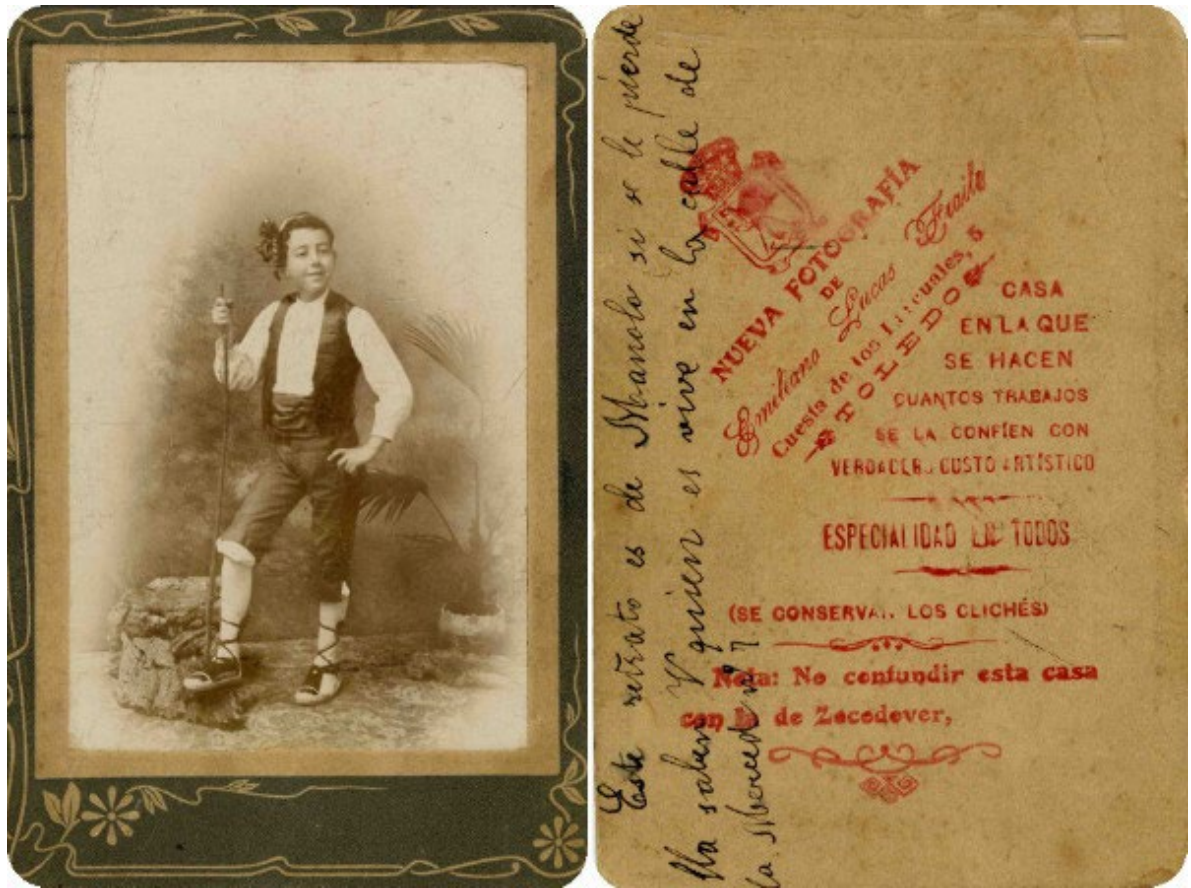 Este retrato es de Manolo si se le pierde
Ya saben V quien es vive en la calle de
la Merced nº 7
NUEVA FOTOGRAFÍA
DE
Emiliano Lucas Fraile
Cuesta de los Pascuales, 5
TOLEDO
CASA
EN LA QUE
SE HACEN
CUANTOS TRABAJOS
SE LA CONFÍEN CON
VERDADERO GUSTO ARTÍSTICO
ESPECIALIDAD EN TODOS
(SE CONSERVAN LOS CLICHÉS)
Nota: No confundir esta casa
con la de Zocodover,